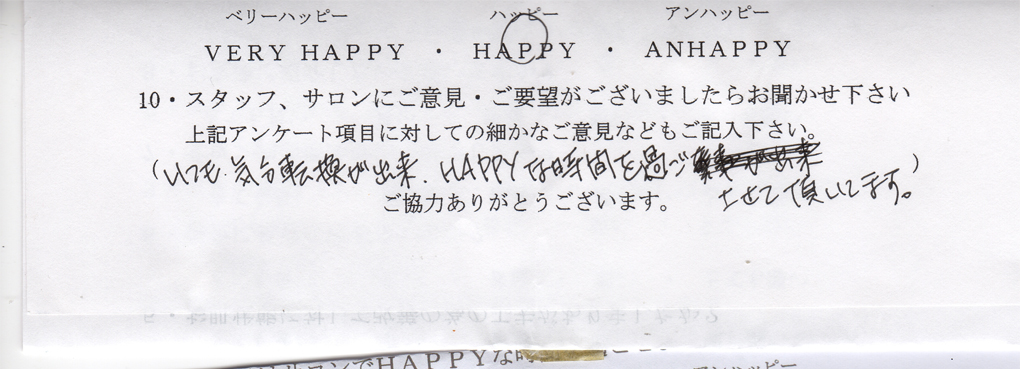 ベリーハッピー ハッピー アンハッピー
VERY HAPPY ・ HAPPY ・ ANHAPPY
10・スタッフ、サロンにご意見・ご要望がございましたらお聞かせ下さい
上記アンケート項目に対しての細かなご意見などもご記入下さい。
(いつも気分転換が出来、HAPPYな時間を過ごさせて頂いてます。)
ご協力ありがとうございます。
サロンでHAPPYな時
アンハッピー